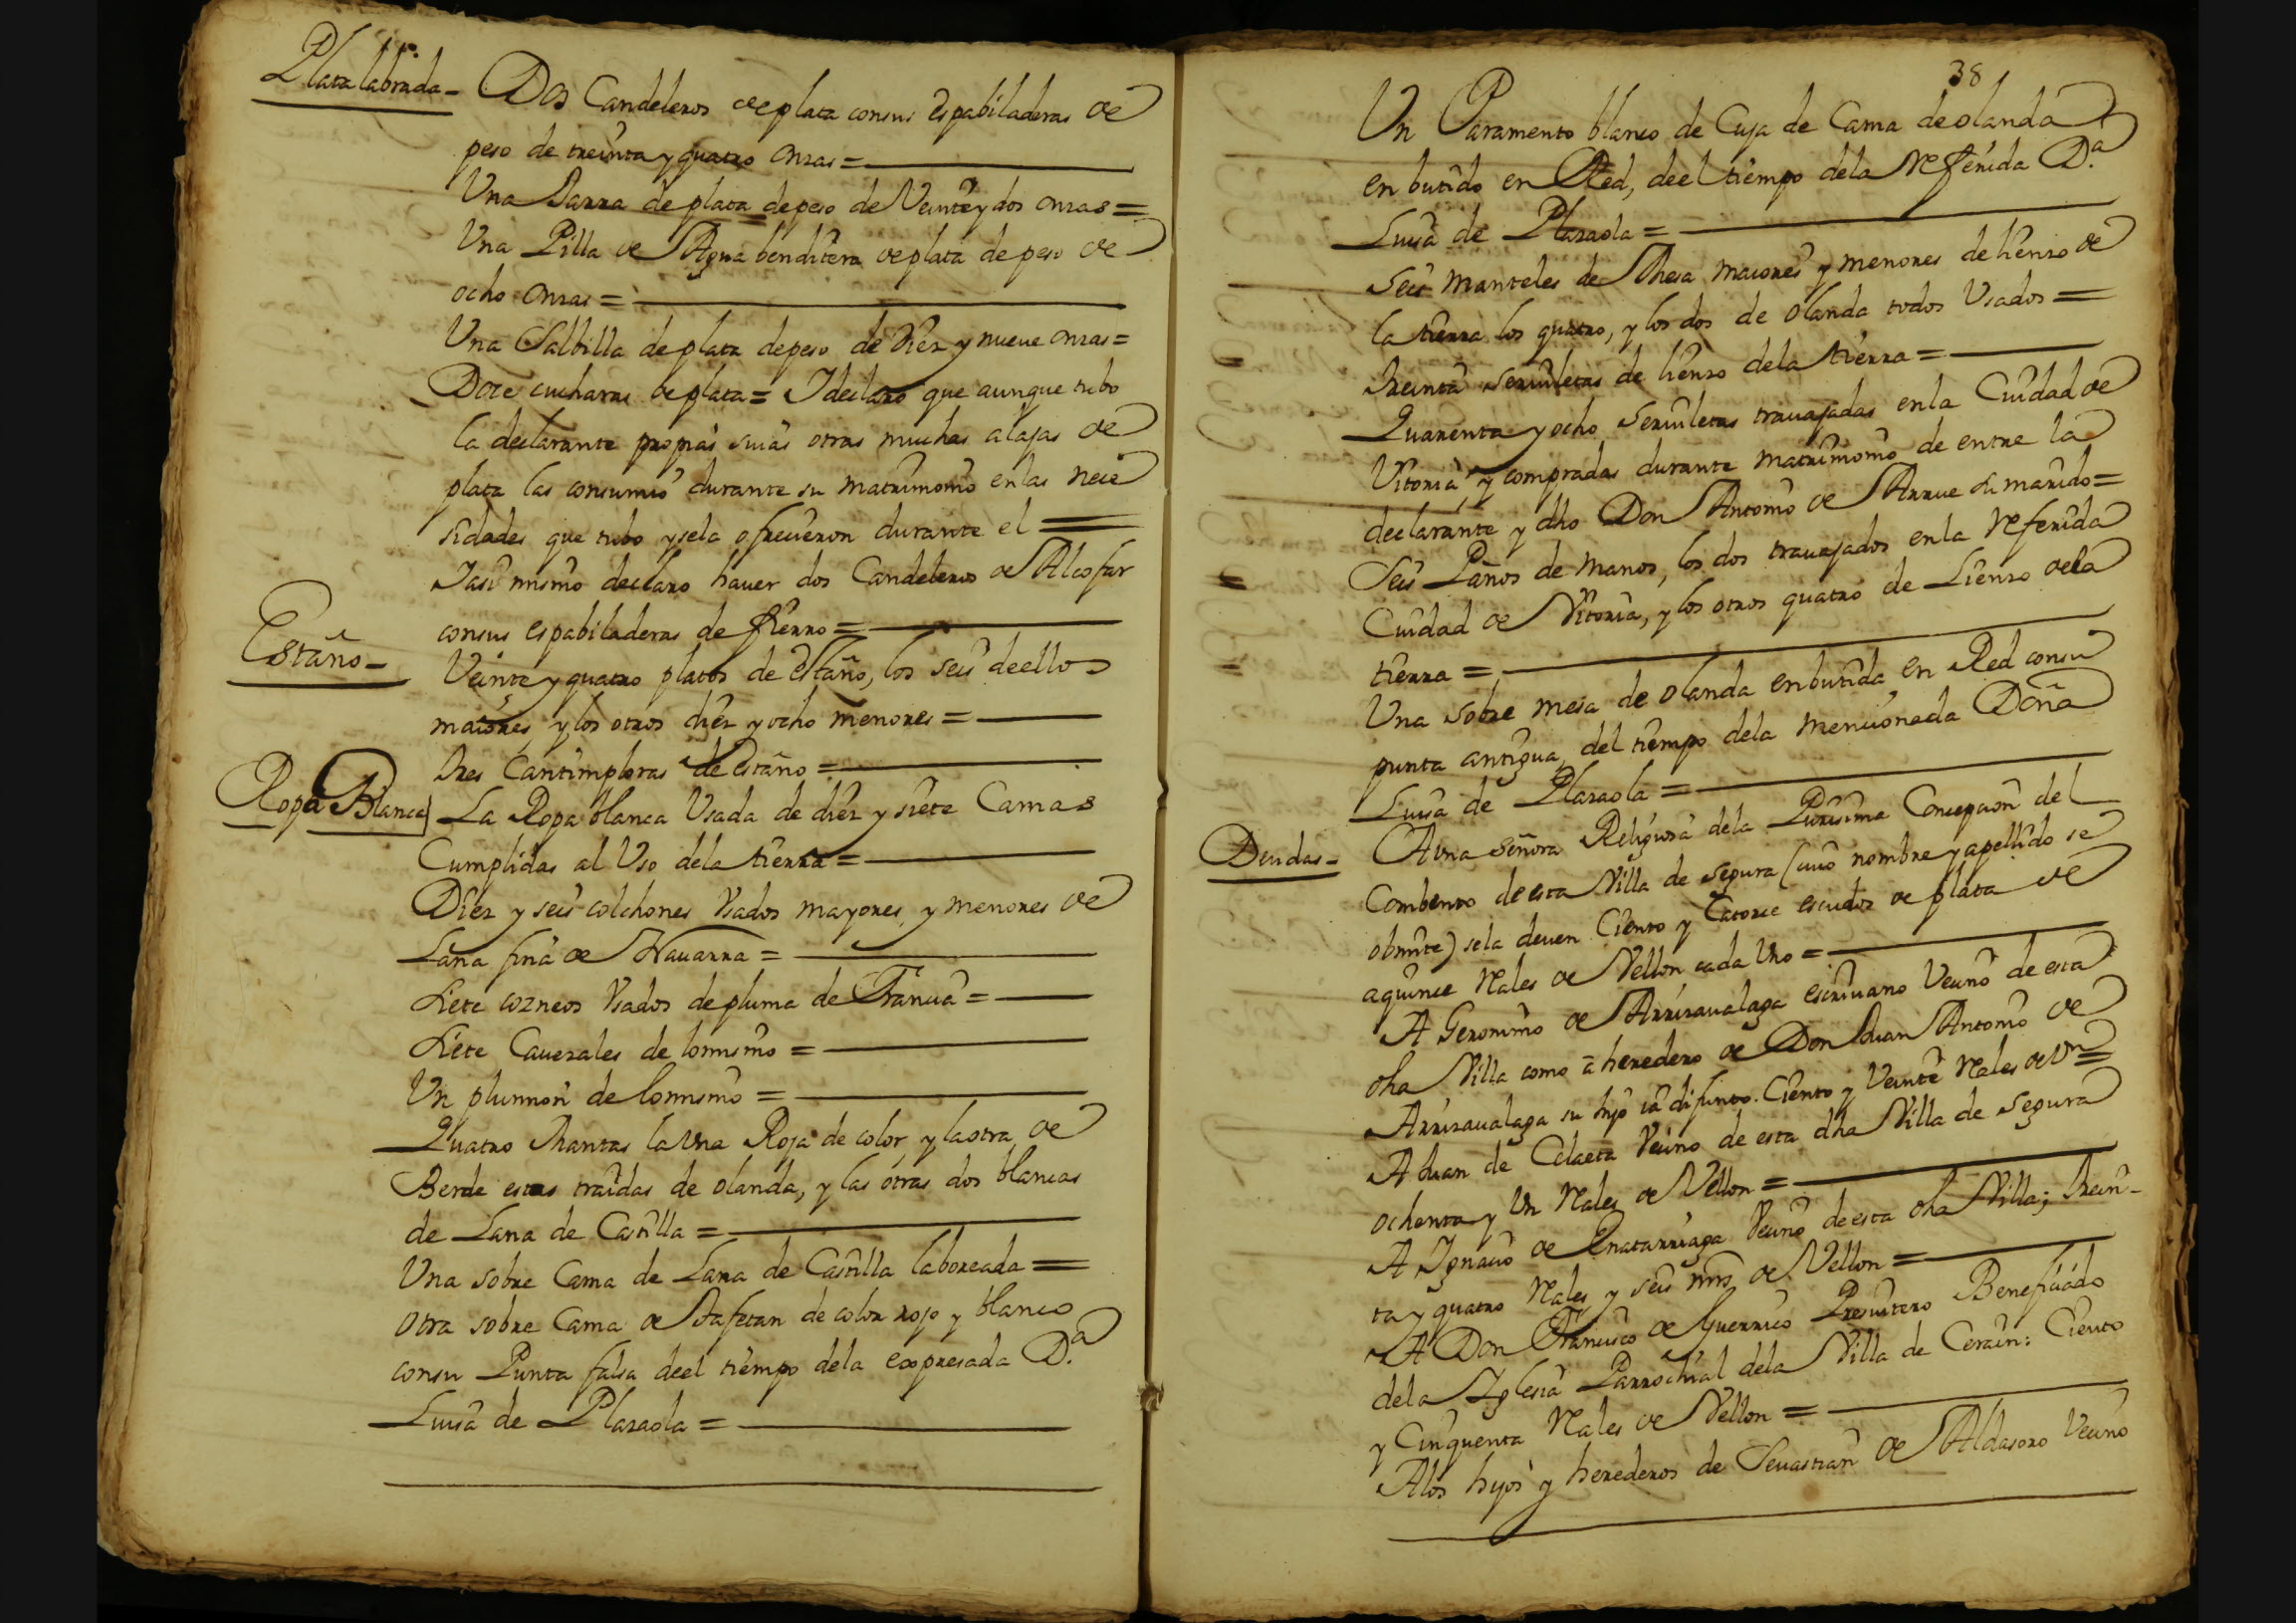 Plata labrada - Dos Candeleros de plata consus espabiladeras de
peso de treinta y quatro onzas =
Una Jarra de plata = depeso de Veinte y dos onzas =
Una Pilla de Agua benditera de plata de peso de
ocho onzas =
Una Salbilla de plata depeso de diez y nueve onzas =
Doze cucharas de plata = Ideclaro que aunque tubo
la declarante propias suias otras muchas alajas de
plata las consumio durante su matrimonio enlas nece
sidades que tubo y sela ofrecieron durante el =
Iasi mismo declaro haver dos Candeleros de Alcofar
consus espabiladeras de fierro =
Estaño - Veinte y quatro platos de estaño, los seis deellos
maiores y los otros diez y ocho menores =
Tres Cantimploras de estaño =
Ropa Blanca La Ropa blanca Usada de diez y siete Camas
Cumplidas al Uso dela tierra =
Diez y seis colchones Vsados mayores y menores de
Lana fina de Navarra =
Siete cozneos Vsados depluma de Francia =
Siete Cavezales de lomismo =
Un plumion de lomismo =
Quatro Mantas la Una Roja de color, y la otra de
Berde estas traidas de olanda, y las otras dos blancas
de Lana de Castilla =
Una sobre Cama de Lana de Castilla laboreada =
Otra sobre Cama de Tafetan de color rojo y blanco
consu Punta falsa deel tiempo dela expresada D.ª
Luisa de Plazaola =
38
Un Paramento blanco de Cuja de Cama de olanda
en butido en Red, deel tiempo dela Referida D.ª
Luisa de Plazaola =
Seis manteles de Mesa maiores y menores de lienzo de
la tierra los quatro, y los dos de olanda todos Usados =
Treinta servilletas de lienzo dela tierra =
Quarenta y ocho Servilletas travajadas enla Ciudad de
Vitoria y compradas durante matrimonio de entre la
declarante y dho Don Antonio de Arrue su marido =
Seis Paños de manos, los dos travajados enla Referida
Ciudad de Vitoria, y los otros quatro de Lienzo dela
tierra =
Una sobre mesa de olanda enbutida en Red consu
punta antigua, del tiempo dela mencionada Doña
Luisa de Plazaola =
Deudas - A una señora Religiosa dela Purisima Concepcion del
Combento de esta Villa de Segura (cuio nombre y apellido se
obmite) sela deven Ciento y Catorce escudos de plata de
aquince Rales de Vellon cada Uno =
A Geronimo de Arrizavalaga escrivano Vecino de esta
dha Villa como a heredero de Don Juan Antonio de
Arrizavalaga su hijo ia difunto. Ciento y Veinte Rales de Vn =
A Juan de Celaeta Vecino de esta dha Villa de Segura
ochenta y Un Rales de Vellon =
A Ignacio de Vecino de esta dha Villa; Trein-
ta y quatro Rales y seis mrs de Vellon =
A Don Francisco de Guerrico Presvitero Beneficiado
dela Iglesia Parrochial dela Villa de Cerain: Ciento
y Cinquenta Rales de Vellon =
Alos hijos y herederos de Sevastian de Aldasoro Vecino